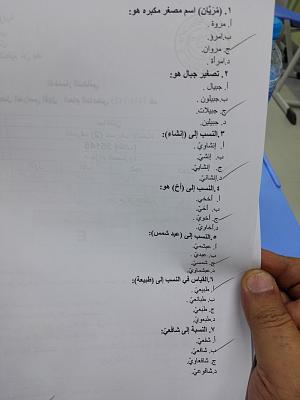 ١. (مُرَيَّان) اسم مصغر مكبره هو:
أ. مروة
ب.امرؤ.
ج. مروان.
د.امرأة .
٢. تصغير جبال هو:
أ. جبيال .
ب.جبيلون .
ج. جبيلات.
د. جبيلين.
٣.النسب إلى (إنشاء):
أ. إنشاويّ .
ب. إنشيّ.
ج. إنشاييّ.
د.إنشائيّ.
٤.النسب إلى (أخ) هو:
أ. أخخي.
ب. أخيّ.
ج. أخويّ .
د.أخاويّ.
٥.النسب إلى (عبد شمس):
أ. عبشميّ.
ب. عبديّ .
ج. شمسيّ.
د.عبشماويّ.
٦.القياس في النسب إلى (طبيعة):
أ. طبيعيّ .
ب. طبائعيّ.
ج. طبعيّ.
د.طبعويّ.
٧. النسبة إلى شافعيّ:
أ. شفعيّ.
ب. شافعيّ.
ج. شافعاويّ.
د.شافوعيّ.